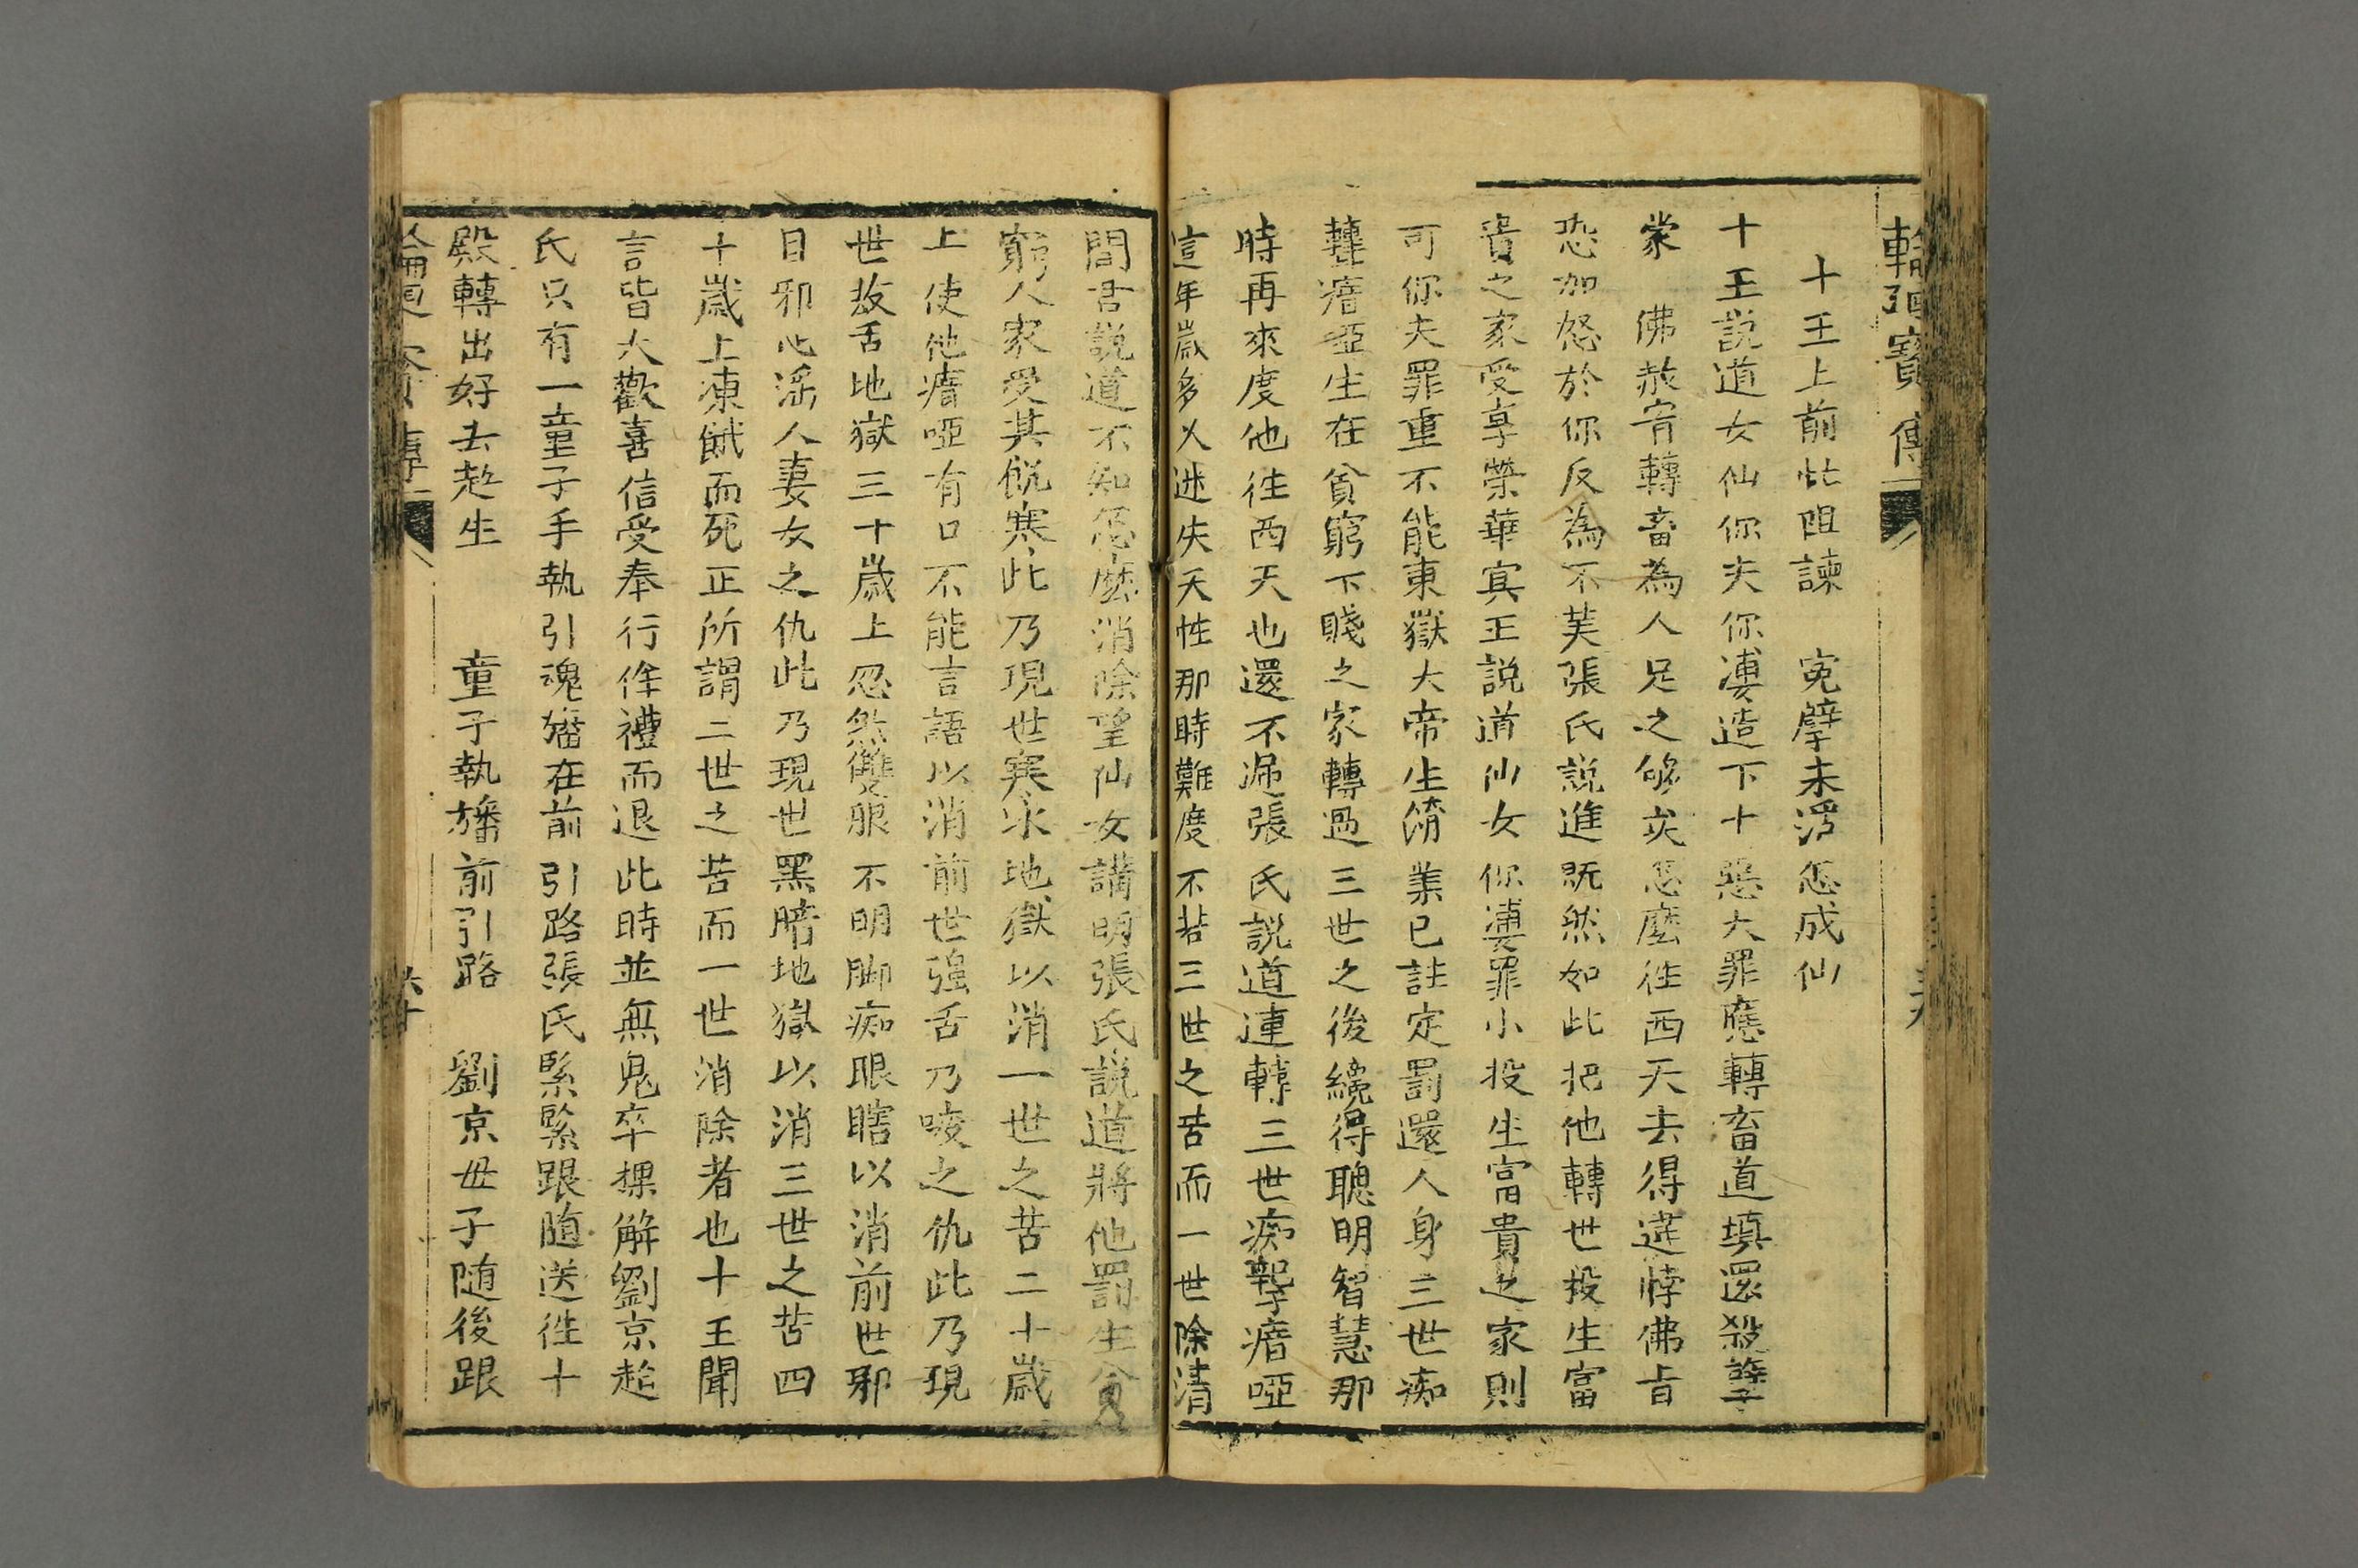 輪廻寶傳
十王上前忙阻諫 冤孽未消怎成仙
十王說道女仙你夫你凄造下十惡大罪應轉畜道填還殺孽
蒙 佛赦宥轉畜為人足之够矣怎麼徃西天去得違悖佛旨
恐加怒於你反為不美張氏說進既然如此把他轉世投生富
貴之家受享榮華冥王說道仙女你凄罪小投生富貴之家則
可你夫罪重不能東獄大帝生前業已註定罰還人身三世痴
聾瘖啞生在貧窮下賤之家轉過三世之後纔得聰明智慧那
時再來度他徃西天也還不遲張氏說道連轉三世痴聾瘖啞
這年歲多久迷失天性那時難度不若三世之苦而一世除清
閻君說道不知怎麼消除望仙女講明張氏說道將他罰生貧
窮人家受其饑寒此乃現世寒氷地獄以消一世之苦二十歲
上使他瘖啞有口不能言語以消前世強舌乃唆之仇此乃現
世放舌地獄三十歲上忽然雙眼不明脚痴眼瞎以消前世邪
目邪心淫人妻女之仇此乃現世黑暗地獄以消三世之苦四
十歲上凍餓而死正所謂二世之苦而一世消除者也十王聞
言皆大歡喜信受奉行作禮而退此時並無鬼卒押解劉京趂
氏只有一童子手執引魂旛在前引路張氏緊緊跟随送徃十
殿轉出好去赴生 童子執旛前引路 劉京母子随後跟
輪廻寶傳 六十